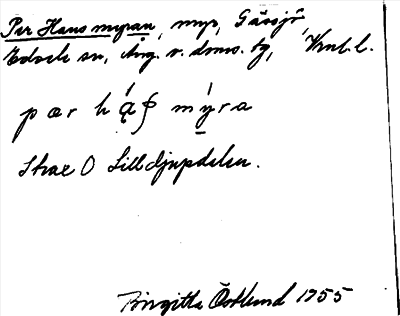 Per Hans myran, myr, Gåssjö
Edsele sn, Ång. v. doms. tg, Vnl. l.
pær hą́ʃ mýra
Strax O Lilldjupdalen.
Birgitta Östlund 1955